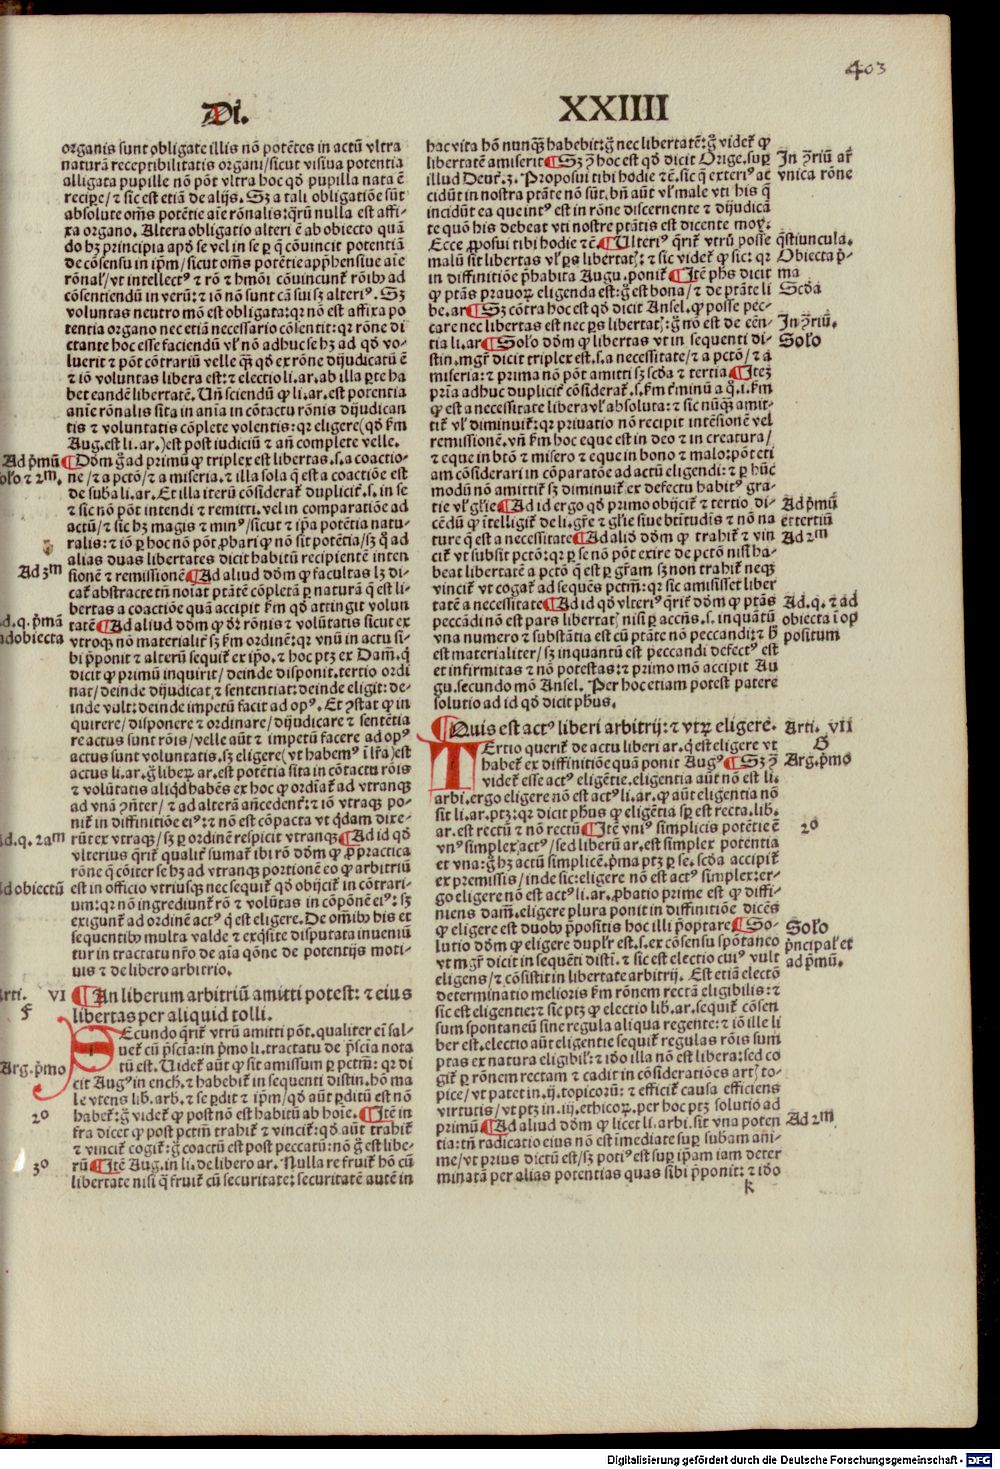 403
Di. XXIIII
organis sunt obligate illis nõ potẽtes in actũ vltra
naturã receptibilitatis organi/sicut visiua potentia
alligata pupille nõ põt vltra hoc qđ pupilla nata ẽ
recipe/ ⁊ sic est etiã de alijs. Sʒ a tali obligatiõe sũt
absolute oms potẽtie aĩe rõnalis: qꝛũ nulla est affi-
xa organo. Altera obligatio alteri ẽ ab obiecto quã
do hʒ principia apđ se vel in se ꝑ ꝗ cõuincit potentiã
de cõsensu in ipm/sicut oms potẽtie apphẽsiue aĩe
ad
cõsentiendũ in verũ: ⁊ iõ nõ sunt cã sui sʒ alteriꝰ. Sʒ
voluntas neutro mõ est obligata: qꝛ nõ est affixa po
tentia organo nec etiã necessario cõsentit: qꝛ rõne di
ctante hoc esse faciendũ vl̃ nõ adhuc se hʒ ad qđ vo-
luerit ⁊ põt cõtrariũ velle qđ ex rõne dijudicatũ ẽ
⁊ iõ voluntas libera est: ⁊ electio li. ar. ab illa ꝑte ha
bet eandẽ libertatẽ. Uñ sciendũ ꝙ li. ar. est potentia
anĩe rõnalis sita in anĩa in cõtactu rõnis dijudican
tis ⁊ voluntatis cõplete volentis: qꝛ eligere(qđ ẜm
Aug. est li. ar.)est post iudiciũ ⁊ añ complete velle.
Ad p̃mũ ¶Dõm g̃ ad primũ ꝙ triplex est libertas. s. a coactio-
⁊ 2m. ne/ ⁊ a pctõ/ ⁊ a miseria. ⁊ illa sola ꝗ est a coactiõe est
de suba li. ar. Et illa iterũ cõsiderat̃ duplicit̃. s. in se
⁊ sic nõ põt intendi ⁊ remitti. vel in comparatiõe ad
actũ/ ⁊ sic hʒ magis ⁊ minꝰ/sicut ⁊ ip̃a potẽtia natu-
ralis: ⁊ iõ ꝑ hoc nõ põt ꝓbari ꝙ nõ sit potẽtia/sʒ ꝙ ad
alias duas libertates dicit habitũ recipientẽ inten
Ad 3m sionẽ ⁊ remissionẽ ¶Ad aliud dõm ꝙ facultas lʒ di-
cat̃ abstracte tñ noiat ptãtẽ cõpletã ꝑ naturã ꝗ est li-
bertas a coactiõe quã accipit ẜm qđ attingit volun
p̃mã tatẽ ¶Ad aliud dõm ꝙ rõnis ⁊ volũtatis sicut ex
ad obiecta vtroqꝫ nõ materialit̃ sʒ ẜm ordinẽ: qꝛ vnũ in actu si-
bi p̃ponit ⁊ alterũ sequit̃ ex ip̃o. ⁊ hoc ptʒ ex Dam. ꝗ
dicit ꝙ primũ inquirit/ deinde disponit. tertio ordi
nat/deinde dijudicat ⁊ sententiat: deinde eligit: de-
inde vult: deinde impetũ facit ad opꝰ. Et ꝯstat ꝙ in
quirere/disponere ⁊ ordinare/dijudicare ⁊ sentẽtia
re actus sunt rõis/velle aũt ⁊ impetũ facere ad opꝰ
actus sunt voluntatis. sʒ eligere(vt habemꝰ ĩ lr̃a)est
actus li. ar. g̃ liberꝝ ar. est potẽtia sita in cõtactu rõis
⁊ volũtatis
ad vnã ꝯñter/ ⁊ ad alterã añcedent̃: ⁊ iõ vtraqꝫ po-
nit̃ in diffinitiõe eiꝰ: ⁊ nõ est cõpacta vt qdam dixe-
q. 2am rũt ex vtraqꝫ/sʒ ꝑ ordinẽ respicit vtranqꝫ ¶Ad id qđ
vlterius qrit̃ qualit̃ sumat̃ ibi rõ dõm ꝙ ꝓ practica
rõne ꝗ cõiter se hʒ ad vtranqꝫ portionẽ eo ꝙ arbitriũ
obiectũ est in officio vtriusqꝫ nec sequit̃ qđ obijcit̃ in cõtrari-
um: qꝛ nõ ingrediunt̃ rõ ⁊ volũtas in cõpõnẽ eiꝰ: sʒ
exigunt̃ ad ordinẽ actꝰ ꝗ est eligere. De omĩbꝰ his et
sequentibꝰ multa valde ⁊ exqsite disputata inueniũ
tur in tractatu nr̃o de aĩa qõne de potentijs moti-
uis ⁊ de libero arbitrio.
Arti. VI ¶An liberum arbitriũ amitti potest: ⁊ eius
libertas per aliquid tolli.
SEcundo qrit̃ vtrũ amitti põt. qualiter eĩ sal-
uet̃ cũ p̃scia: in p̃mo li. tractatu de p̃scia nota
Arg. p̃mo tũ est. Videt̃ aũt ꝙ sit amissum ꝑ pctm̃: qꝛ di
cit Augꝰ in ench. ⁊ habebit̃ in sequenti distin. hõ ma
le vtens lib. arb. ⁊ se ꝑdit ⁊ ipm/qđ aũt ꝑditũ est nõ
2º habet̃: g̃ videt̃ ꝙ post nõ est habitũ ab hoĩe. ¶Itẽ in
fra dicet̃ ꝙ post pctm̃ trahit̃ ⁊ vincit̃: qđ aũt trahit̃
⁊ vincit̃ cogit̃: g̃ coactũ est post peccatũ: nõ g̃ est libe-
3º rũ ¶Itẽ Aug. in li. de libero ar. Nulla re fruit̃ hõ cũ
libertate nisi ꝗ fruit̃ cũ securitate: securitatẽ autẽ in
hac vita hõ nunqꝫ habebit: g̃ nec libertatẽ: g̃ videt̃ ꝙ
libertatẽ amiserit ¶Sʒ ꝯ̃ hoc est qđ dicit Orige. suꝑ In ꝯ̃riũ ar̃
illud Deut̃. 3. Proposui tibi hodie ⁊ẽ. sic ꝗ exteriꝰ ac vnica rõne
cidũt in nostra ptãte nõ sũt. bñ aũt vl̃ male vti his ꝗ
incidũt ea que intꝰ est in rõne discernente ⁊ dijudicã
te quõ his debeat vti nostre ptãtis est dicente moy.
Ecce ꝓposui tibi hodie ⁊ẽ. ¶Ulteriꝰ qrit̃ vtrũ posse qstiuncula.
malũ sit libertas vl̃ ps libertatꝭ: ⁊ sic videt̃ ꝙ sic: qꝛ Obiecta p̃-
in diffinitiõe p̃habita Augu. ponit̃ ¶Itẽ phs dicit ma
ꝙ ptãs prauorꝝ eligenda est: g̃ est bona/ ⁊ de ptãte li Scđa
be. ar ¶Sʒ cõtra hoc est qđ dicit Ansel. ꝙ posse pec-
care nec libertas est nec ps libertatꝭ: g̃ nõ est de eẽn- In ꝯ̃riũ.
tia li. ar ¶Solo dõm ꝙ libertas vt in sequenti di- Solo
stin. mgr̃ dicit triplex est. s. a necessitate/ ⁊ a pctõ/ ⁊ a
miseria: ⁊ prima nõ põt amitti sʒ scđa ⁊ tertia ¶Iteʒ
pria adhuc duplicit̃ cõsiderat̃. s. ẜm t̃minũ a ꝗ. i. ẜm
ꝙ est a necessitate libera vl̃ absoluta: ⁊ sic nũqꝫ amit-
tit̃ vl̃ diminuit̃: qꝛ priuatio nõ recipit intẽsionẽ vel
remissionẽ. vñ ẜm hoc eque est in deo ⁊ in creatura/
⁊ eque in btõ ⁊ misero ⁊ eque in bono ⁊ malo: põt eti
am cõsiderari in cõparatõe ad actũ eligendi: ⁊ ꝑ hũc
modũ nõ amittit̃ sʒ diminuit̃ ex defectu habitꝰ gra-
tie vl̃ gl̃ie ¶Ad id ergo qđ primo obijcit̃ ⁊ tertio di- Ad p̃mũ
cẽdũ ꝙ ĩtelligit̃ de li. gr̃e ⁊ gl̃ie siue btitudis ⁊ nõ na et tertiũ
ture ꝗ est a necessitate ¶Ad aliđ dõm ꝙ trahit̃ ⁊ vin Ad 2m
cit̃ vt subsit pctõ: qꝛ ꝑ se nõ põt exire de pctõ nisi ha-
beat libertatẽ a pctõ ꝗ est ꝑ gr̃am sʒ non trahit̃ neqꝫ
vincit̃ vt cogat̃ ad sequẽs pctm̃: qꝛ sic amisisset liber
tatẽ a necessitate ¶Ad id qđ vlteriꝰ qrit̃ dõm ꝙ ptãs Ad. q. ⁊ ad
peccãdi nõ est pars libertatꝭ nisi ꝑ accñs. s. inquãtũ obiecta ĩ op
vna numero ⁊ substãtia est cũ ptãte nõ peccandi: ⁊ positum
est materialiter/sʒ inquantũ est peccandi defectꝰ est
et infirmitas ⁊ nõ potestas: ⁊ primo mõ accipit Au
gu. secundo mõ Ansel. Per hoc etiam potest patere
solutio ad id qđ dicit phus.
¶Quis est actꝰ liberi arbitrij: ⁊ vtꝝ eligere. Arti. VII
TErtio querit̃ de actu liberi ar. ꝗ est eligere vt
habet̃ ex diffinitiõe quã ponit Augꝰ ¶Sʒ ꝯ̃ Arg. p̃mo
videt̃ esse actꝰ eligẽtie. eligentia aũt nõ est li.
arbi. ergo eligere nõ est actꝰ li. ar. ꝙ aũt eligentia nõ
sit li. ar. ptʒ: qꝛ dicit phus ꝙ eligẽtia sꝑ est recta. lib.
ar. est rectũ ⁊ nõ rectũ ¶Itẽ vniꝰ simplicis potẽtie ẽ 2º
vnꝰ simplex actꝰ/sed liberũ ar. est simplex potentia
et vna: g̃ hʒ actũ simplicẽ. p̃ma ptʒ ꝑ se. scđa accipit̃
ex premissis/inde sic: eligere nõ est actꝰ simplex: er-
go eligere nõ est actꝰ li. ar. ꝓbatio prime est ꝙ diffi-
niens dam. eligere plura ponit in diffinitiõe dicẽs
ꝙ eligere est duobꝰ p̃positis hoc illi p̃optare ¶So- Solo
lutio dõm ꝙ eligere duplr̃ est. s. ex cõsensu spõtaneo p̃ncipal̃ et
vt mgr̃ dicit in sequẽti disti. ⁊ sic est electio cuiꝰ vult ad p̃mũ.
eligens/ ⁊ cõsistit in libertate arbitrij. Est etiã electõ
determinatio melioris ẜm rõnem rectã eligibilis: ⁊
sic est eligentie: ⁊ sic ptʒ ꝙ electio lib. ar. sequit̃ cõsen
sum spontaneũ sine regula aliqua regente: ⁊ iõ ille li
ber est. electio aũt eligentie sequit̃ regulas rõis sum
ptas ex natura eligibil̃: ⁊ ido illa nõ est libera: sed co
git̃ ꝑ rõnem rectam ⁊ cadit in cõsideratiões artꝭ to-
pice/vt patet in. ij. topicorũ: ⁊ efficit̃ causa efficiens
virtutis/vt ptʒ in. iij. ethicorꝝ. per hoc ptʒ solutio ad
primũ ¶Ad aliud dõm ꝙ licet li. arbi. sit vna poten Ad 2m
tia: tñ radicatio eius nõ est ĩmediate suꝑ subam ani-
me/vt prius dictũ est/sʒ potiꝰ est suꝑ ip̃am iam deter
minatã per alias potentias quas sibi p̃ponit: ⁊ ido
k
Digitalisierung gefördert durch die Deutsche Forschungsgemeinschaft - DFG